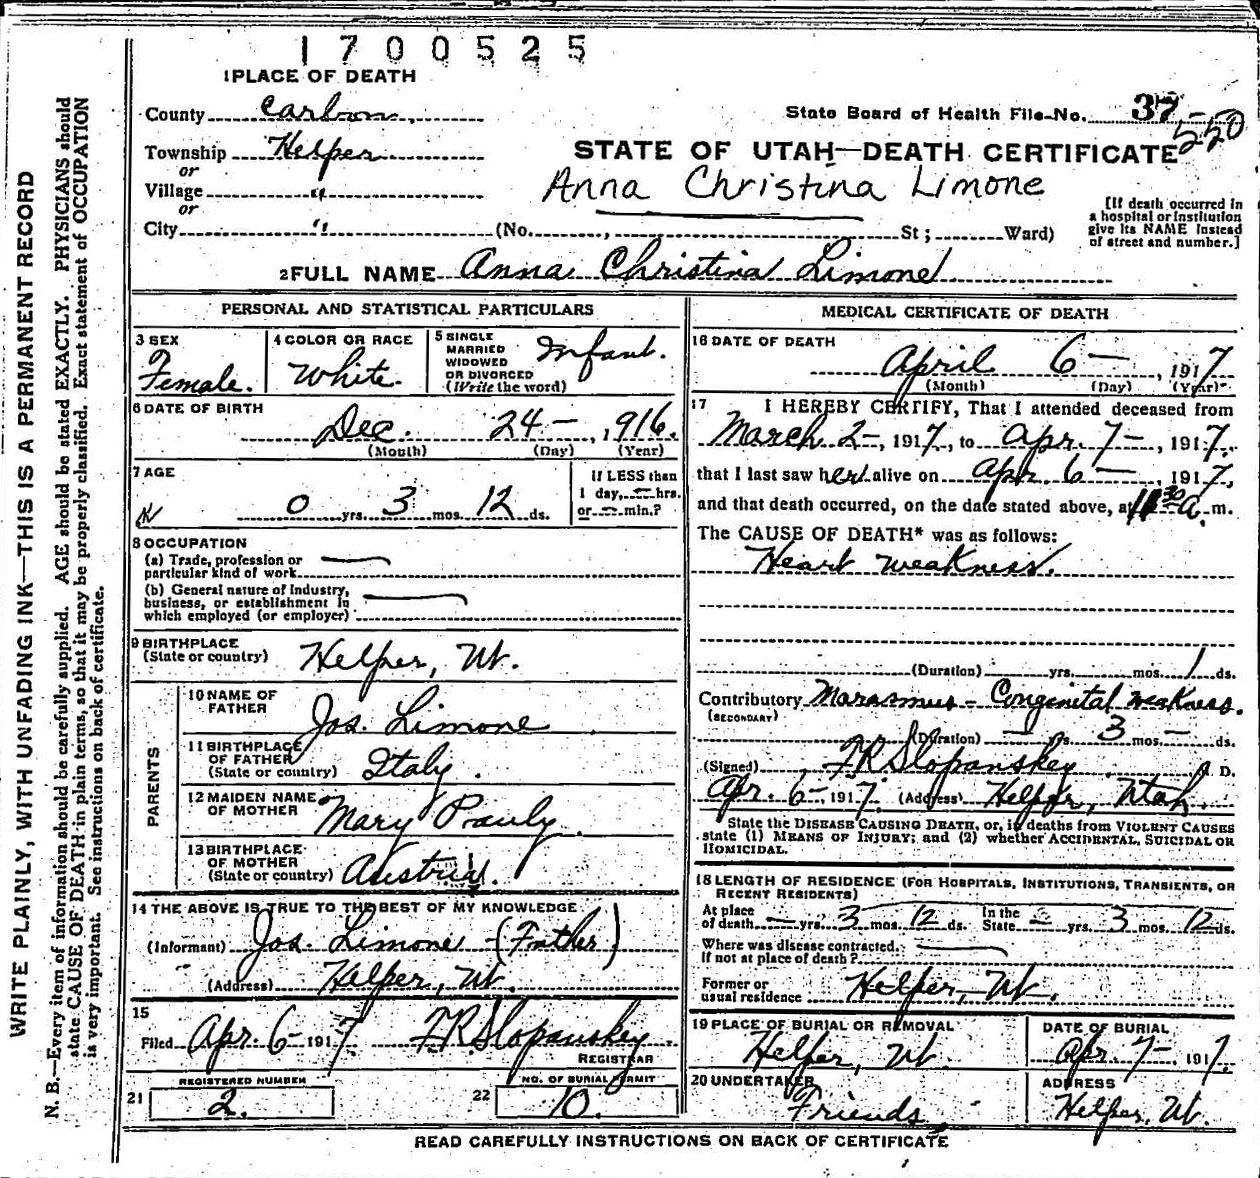 1700525
1 PLACE OF DEATH
County Carbon
State Board of Health File No. 37
550
Township Helper
STATE OF UTAH—DEATH CERTIFICATE
or
Village "
Anna Christina Limone
or
City " (No. , St ; Ward)
[If death occurred in
a hospital or institution
give its NAME instead
of street and number.]
2 FULL NAME Anna Christina Limone
PERSONAL AND STATISTICAL PARTICULARS
3 SEX
Female.
4 COLOR OR RACE
White.
5 SINGLE
MARRIED
WIDOWED
OR DIVORCED
(Write the word)
Infant.
6 DATE OF BIRTH
Dec. 24 — , 1916.
(Month) (Day) (Year)
7 AGE
0 yrs. 3 mos. 12 ds.
If LESS than
1 day, — hrs.
or — min.?
8 OCCUPATION
(a) Trade, profession or
particular kind of work —
(b) General nature of Industry,
business, or establishment in
which employed (or employer) —
9 BIRTHPLACE
(State or country) Helper, Ut.
PARENTS
10 NAME OF
FATHER Jos. Limone
11 BIRTHPLACE
OF FATHER
(State or country) Italy.
12 MAIDEN NAME
OF MOTHER Mary Prauly
13 BIRTHPLACE
OF MOTHER
(State or country) Austria.
14 THE ABOVE IS TRUE TO THE BEST OF MY KNOWLEDGE
(Informant) Jos. Limone — (Father)
(Address) Helper, Ut.
15
Filed Apr. 6 — 1917 F R Slopanskey
REGISTRAR
REGISTERED NUMBER
21 2.
NO. OF BURIAL PERMIT
22 10.
MEDICAL CERTIFICATE OF DEATH
16 DATE OF DEATH
April 6 — , 1917
(Month) (Day) (Year)
17 I HEREBY CERTIFY, That I attended deceased from
March 2 —, 1917, to Apr. 7 —, 1917,
that I last saw her alive on Apr. 6 — 1917,
and that death occurred, on the date stated above, at 11 30 a. m.
The CAUSE OF DEATH* was as follows:
Heart weakness.
(Duration) yrs. mos. 1 ds.
Contributory Marasmus — Conginital weakness.
(SECONDARY)
(Duration) — yrs. 3 mos. — ds.
(Signed) F R Slopanskey D.
Apr. 6 —, 1917. (Address) Helper, Utah.
State the DISEASE CAUSING DEATH, or, in deaths from VIOLENT CAUSES
state (1) MEANS OF INJURY; and (2) whether ACCIDENTAL, SUICIDAL OR
HOMICIDAL.
18 LENGTH OF RESIDENCE (FOR HOSPITALS, INSTITUTIONS, TRANSIENTS, OR
RECENT RESIDENTS)
At place
of death — yrs. 3 mos. 12 ds.
In the
State — yrs. 3 mos. 12 ds.
Where was disease contracted,
If not at place of death? —
Former or
usual residence Helper, Ut.
19 PLACE OF BURIAL OR REMOVAL
Helper, Ut.
DATE OF BURIAL
Apr. 7 — 1917.
20 UNDERTAKER
Friends
ADDRESS
Helper, Ut.
READ CAREFULLY INSTRUCTIONS ON BACK OF CERTIFICATE
WRITE PLAINLY, WITH UNFADING INK—THIS IS A PERMANENT RECORD
N. B.—Every item of information should be carefully supplied. AGE should be stated EXACTLY. PHYSICIANS should
state CAUSE OF DEATH in plain terms, so that it may be properly classified. Exact statement of OCCUPATION
is very important. See instructions on back of certificate.